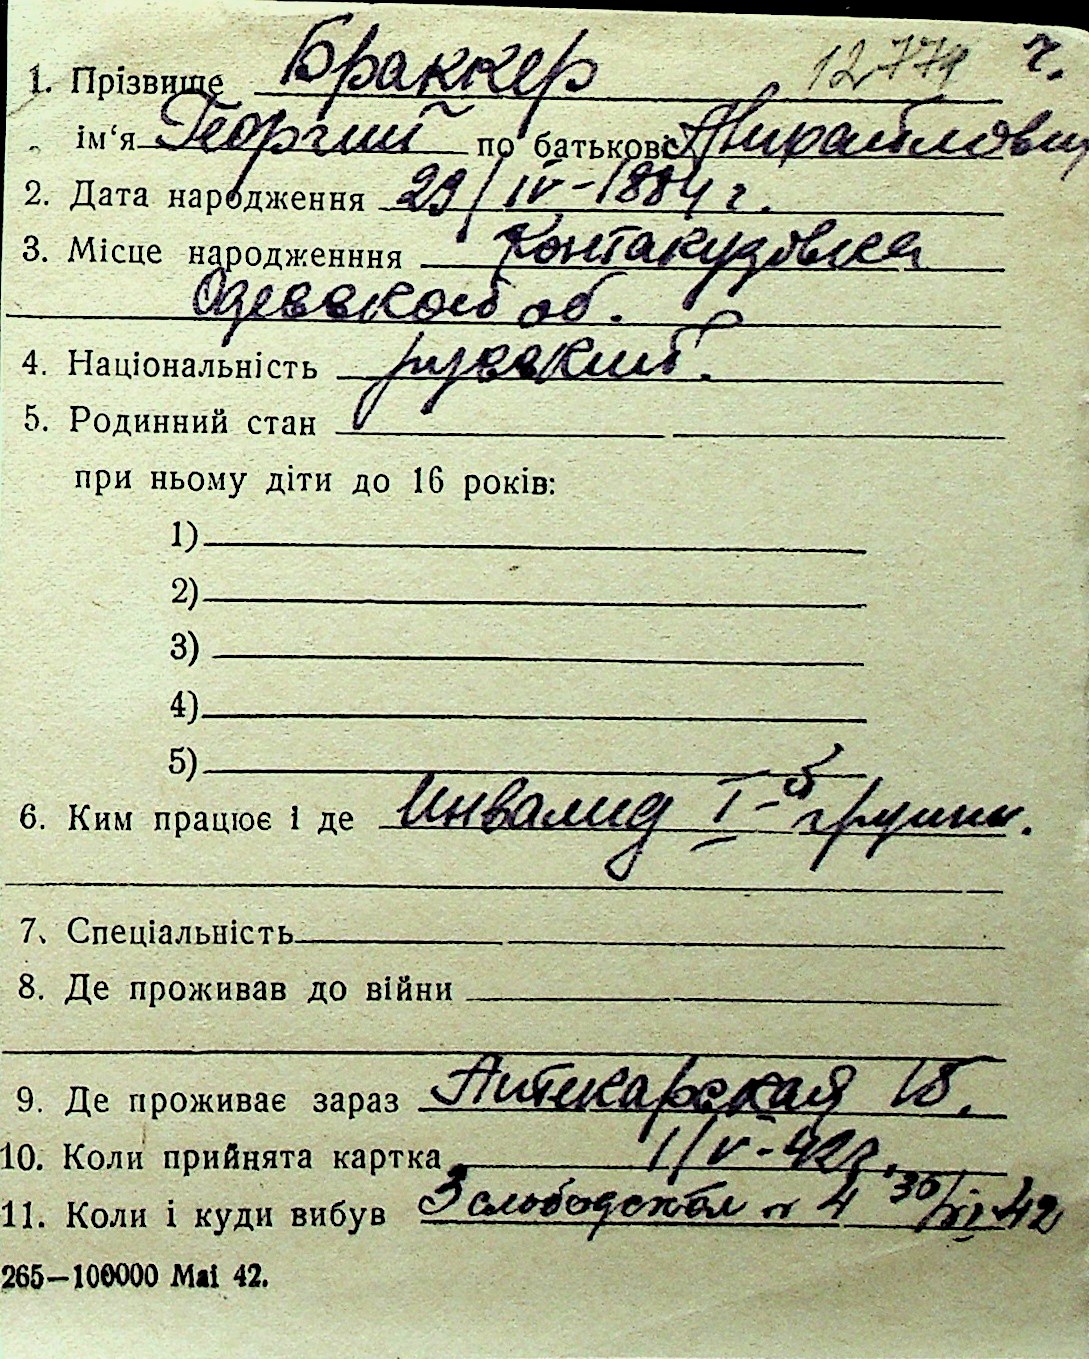 1. Прізвище Браккер 12779 г.
ім‘я Георгий по батькові Михайлович
2. Дата народження 29/IV-1884 г.
3. Місце народженння Контакузовка
Одесской об.
4. Національність русский.
5. Родинний стан
при ньому діти до 16 років:
1)
2)
3)
4)
5)
6. Ким працює і де Инвалид I-й группы.
7. Спеціальність
8. Де проживав до війни
9. Де проживає зараз Аптекарская 18.
10. Коли прийнята картка 1/V-42г.
11. Коли і куди вибув 3 слободская 4 30/XI-42
265—100000 Mai 42.